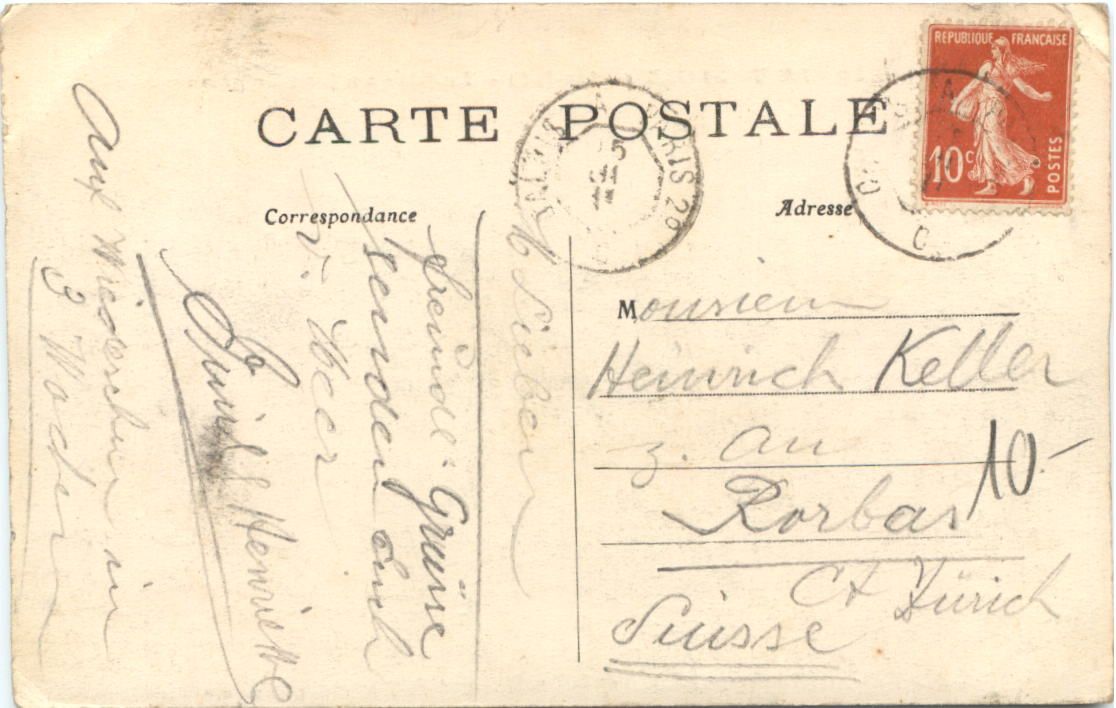 CARTE POSTALE
Correspondance
Adresse
RÉPUBLIQUE FRANÇAISE
10c
POSTES
PARIS
M Lieben
freundl. Grüsse
senden Euch
v. Meer
Henriette
Auf Wiedersehen in
3 Wochen
Monsieur
Heinrich Keller
z. Au
Rorbas
Ct Zürich
Suisse
10.-